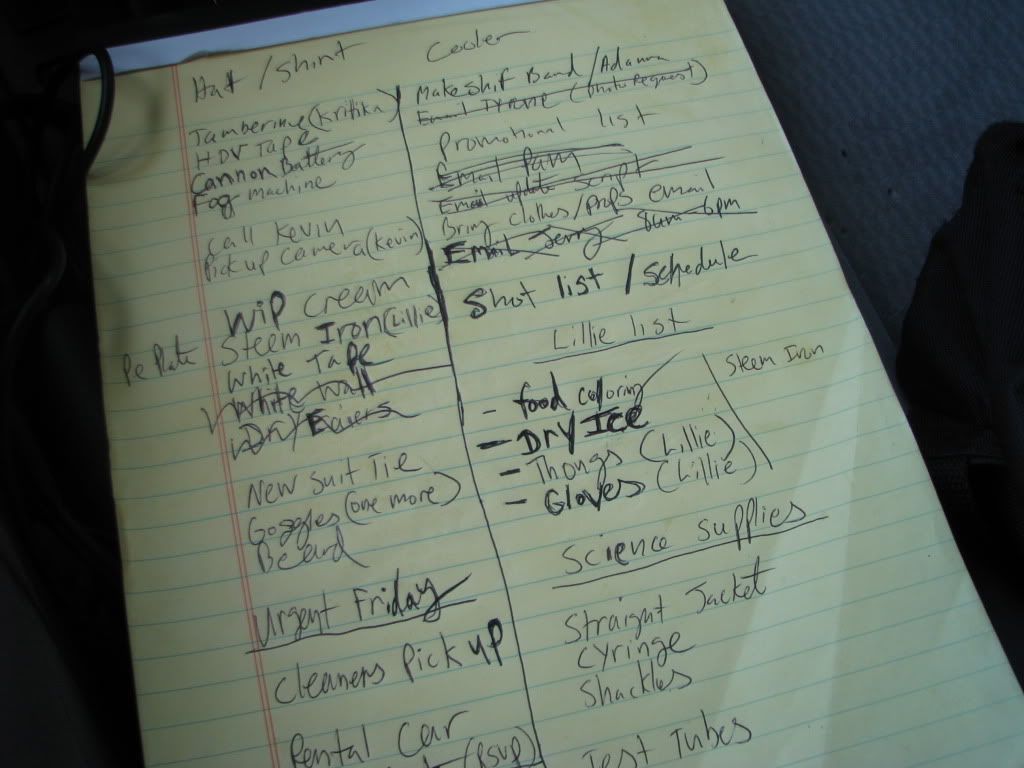 Hat / Shirt
Tamberine (Kritika)
HDV Tape
Cannon Battery
Fog machine
Call Kevin
Pick up camera (Kevin)
Wip Cream
Steem Iron (Lillie)
Pe Plate
White Tape
White Wall
New Suit Tie
Goggles (one more)
Beard
Urgent Friday
Cleaners Pick up
Rental Car
(RSVP)
Cooler
Makeshif Band / Adanna
Email (photo request)
Promotional list
Email Pam
Email update script
Bring clothes/props email
Email Jerry 8am-6pm
Shot list / schedule
Lillie list
- food coloring
- Dry Ice
- Thongs (Lillie)
- Gloves (Lillie)
Steem Iron
Science supplies
Straight Jacket
Cyringe
Shackles
Test Tubes